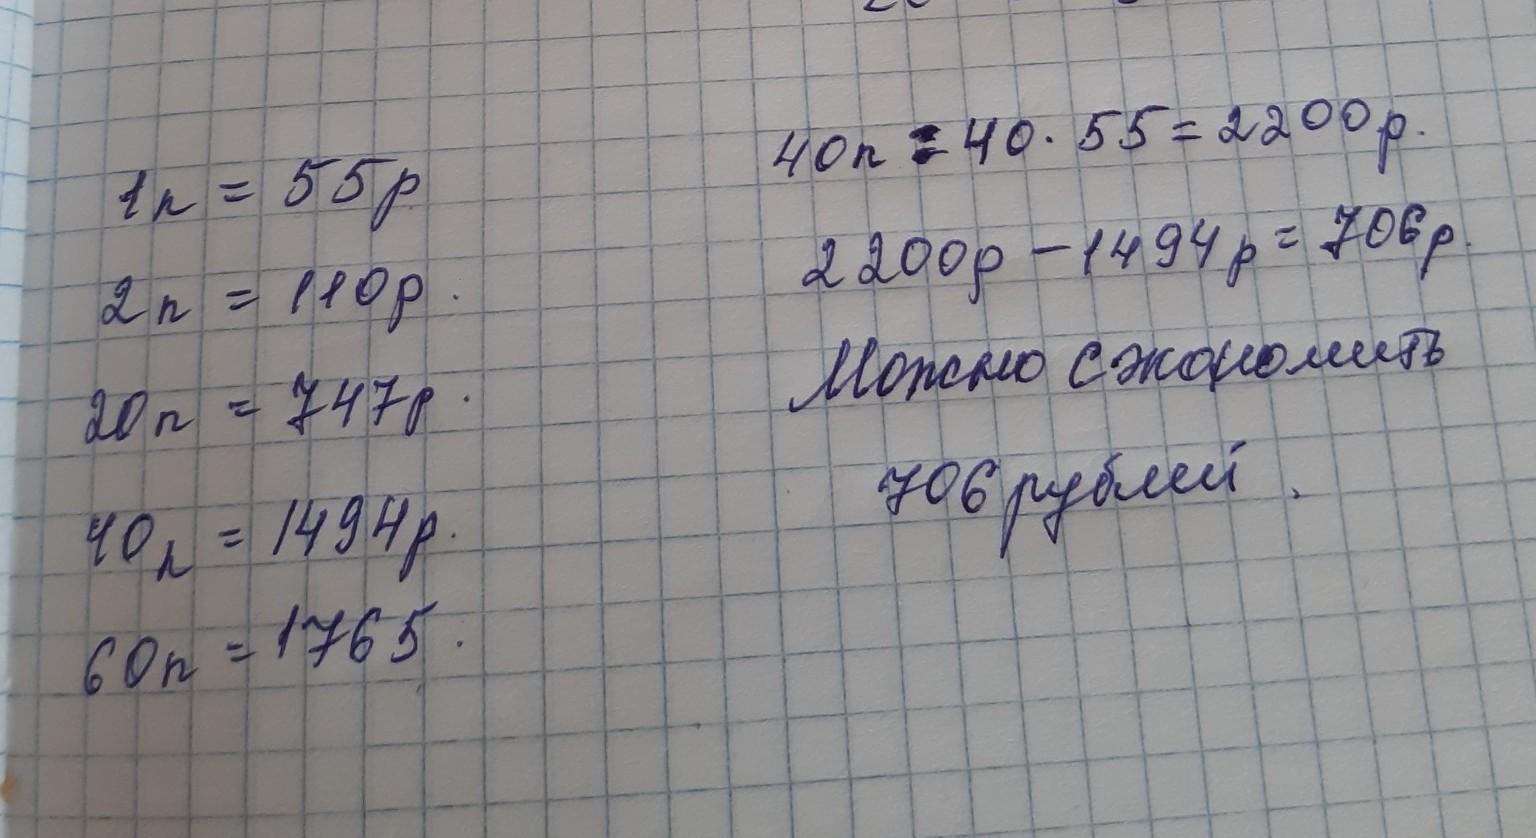 1п = 55р
2п = 110р.
20п = 747р.
40п = 1494р.
60п = 1765.
40п = 40 · 55 = 2200р.
2200р - 1494р = 706р.
Можно сэкономить
706 рублей.